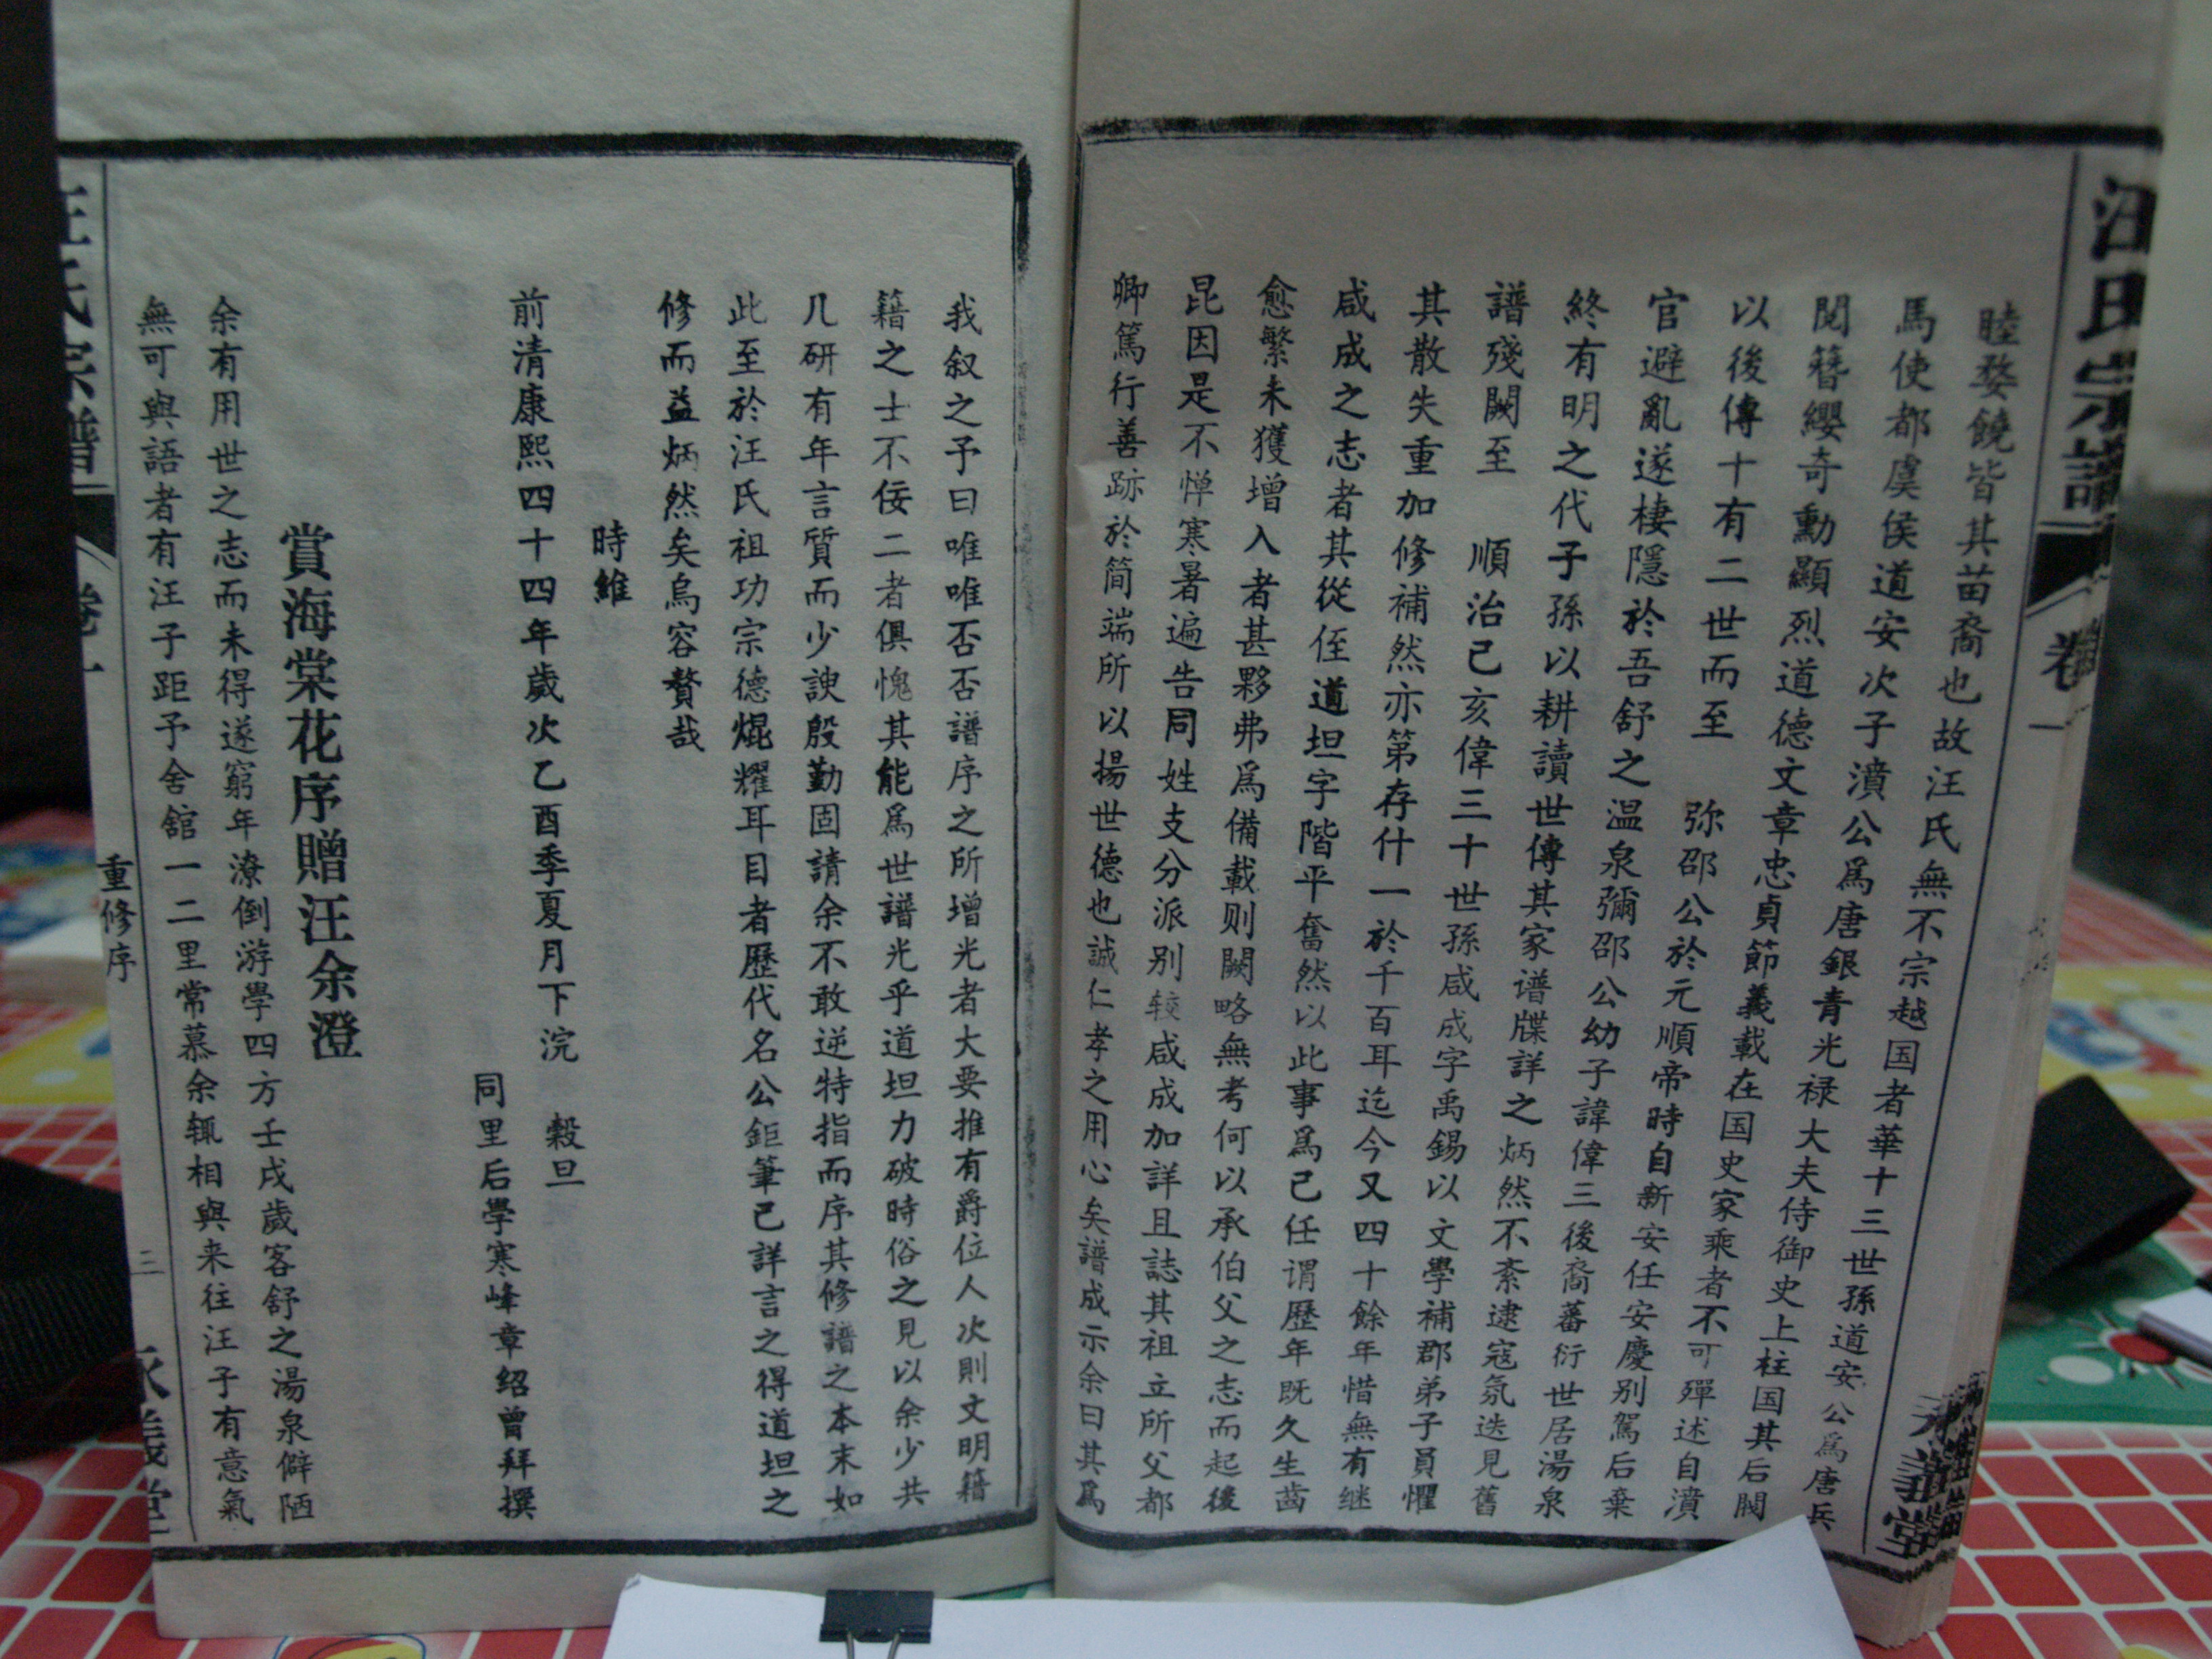 汪氏宗譜
卷一
睦婺饒皆其苗裔也故汪氏無不宗越国者華十三世孫道安公爲唐兵
馬使都虞侯道安次子濆公爲唐銀青光禄大夫侍御史上柱国其后閥
閱簪纓奇勳顯烈道德文章忠貞節義載在国史家乘者不可殫述自濆
以後傳十有二世而至　弥邵公於元順帝時自新安任安慶别駕后棄
官避亂遂棲隱於吾舒之温泉彌邵公幼子諱偉三後裔蕃衍世居湯泉
終有明之代子孫以耕讀世傳其家谱牒詳之炳然不紊逮寇氛迭見舊
譜殘闕至　順治己亥偉三十世孫咸成字禹錫以文學補郡弟子員懼
其散失重加修補然亦第存什一於千百耳迄今又四十餘年惜無有继
咸成之志者其從侄道坦字階平奮然以此事爲己任谓歷年既久生齒
愈繁未獲增入者甚夥弗爲備載则闕略無考何以承伯父之志而起後
昆因是不惮寒暑遍告同姓支分派别较咸成加詳且誌其祖立所父都
卿篤行善跡於简端所以揚世德也誠仁孝之用心矣譜成示余曰其爲
我叙之予曰唯唯否否譜序之所增光者大要推有爵位人次則文明籍
籍之士不佞二者俱愧其能爲世譜光乎道坦力破時俗之見以余少共
几研有年言質而少諛殷勤固請余不敢逆特指而序其修譜之本末如
此至於汪氏祖功宗德焜耀耳目者歷代名公鉅筆已詳言之得道坦之
修而益炳然矣烏容贅哉
時維
前清康熙四十四年歲次乙酉季夏月下浣　穀旦
同里后學寒峰章绍曾拜撰
賞海棠花序贈汪余澄
余有用世之志而未得遂窮年潦倒游學四方壬戌歲客舒之湯泉僻陋
無可與語者有汪子距予舍館一二里常慕余辄相與来往汪子有意氣
重修序
三